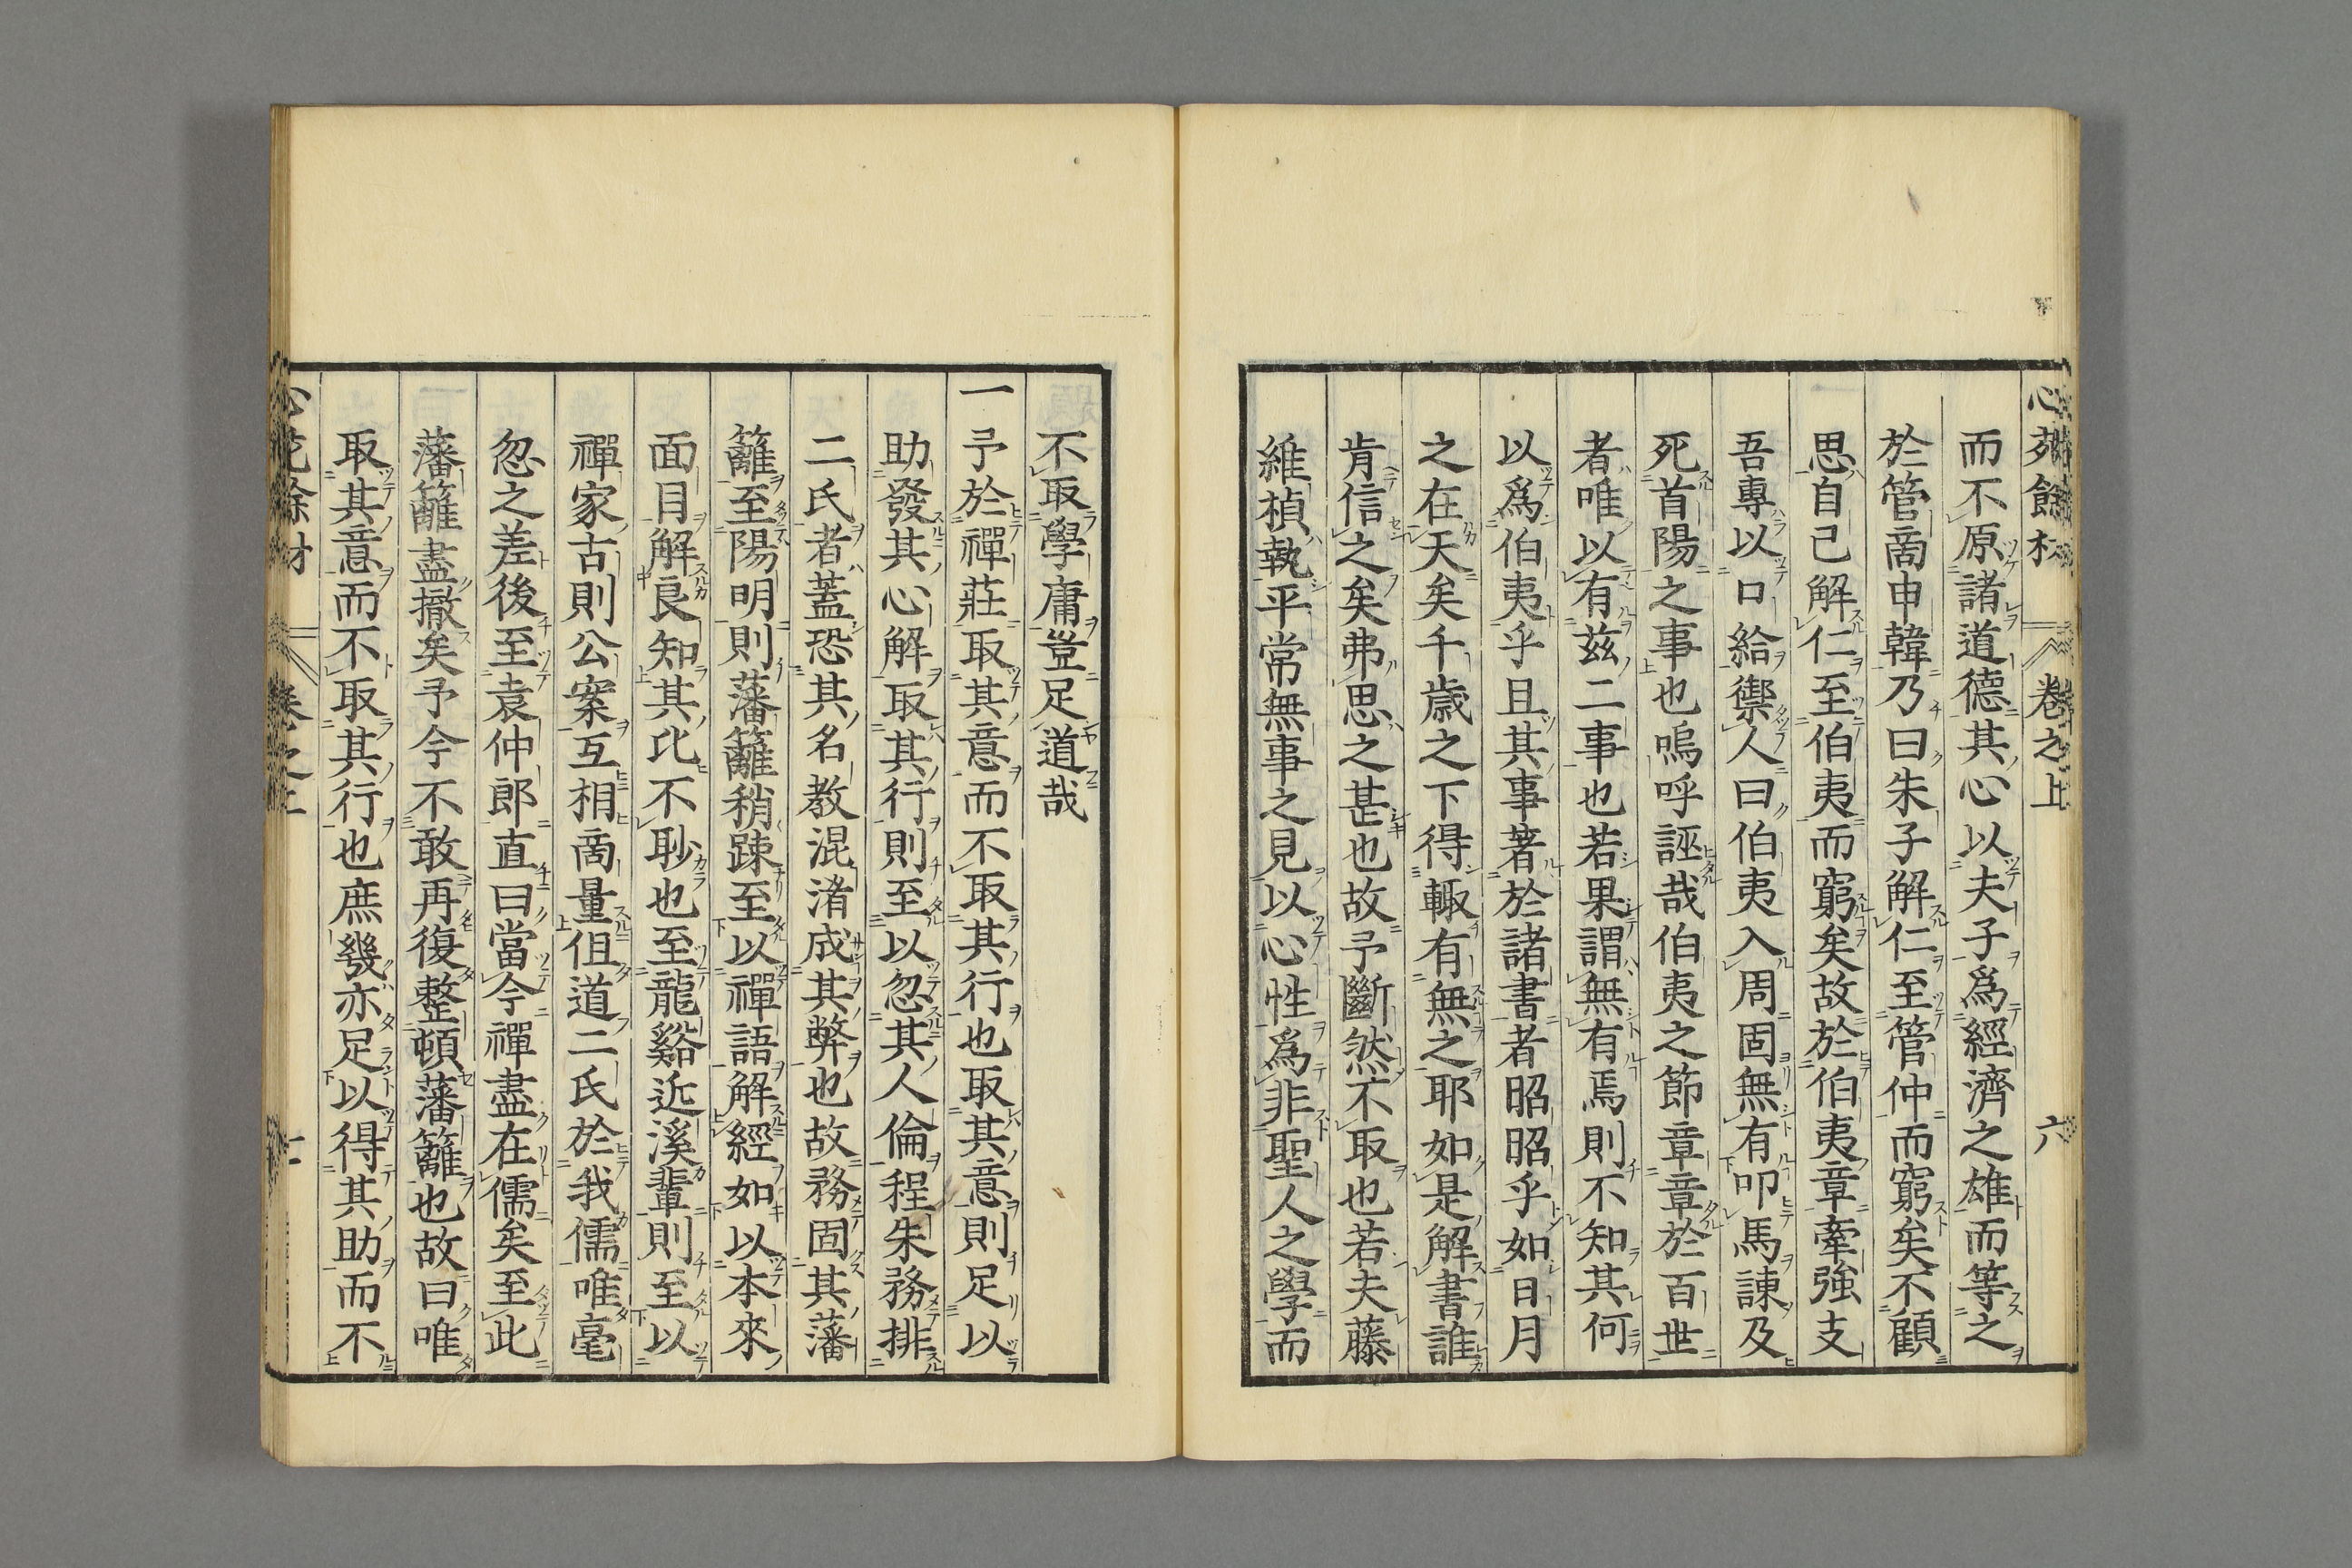 心苑餘材 卷之上 六
而不原諸道德其心以夫子爲經濟之雄而等之
於管商申韓乃曰朱子解仁至管仲而窮矣不顧
思自己解仁至伯夷而窮矣故於伯夷章牽強支
吾專以口給禦人曰伯夷入周固無有叩馬諌及
死首陽之事也嗚呼誣哉伯夷之節章章於百世
者唯以有茲二事也若果謂無有焉則不知其何
以爲伯夷乎且其事著於諸書者昭昭乎如日月
之在天矣千歳之下得輙有無之耶如是解書誰
肯信之矣弗思之甚也故予斷然不取也若夫藤
維楨執平常無事之見以心性爲非聖人之學而
不取學庸豈足道哉
一予於禪莊取其意而不取其行也取其意則足以
助發其心解取其行則至以忽其人倫程朱務排
二氏者蓋恐其名教混淆成其弊也故務固其藩
籬至陽明則藩籬稍踈至以禪語解經如以本來
面目解良知其比不尠也至龍谿近溪輩則至以
禪家古則公案互相商量但道二氏於我儒唯毫
忽之差後至袁仲郎直曰當今禪盡在儒矣至此
藩籬盡撤矣予今不敢再復整頓藩籬也故曰唯
取其意而不取其行也庶幾亦足以得其助而不